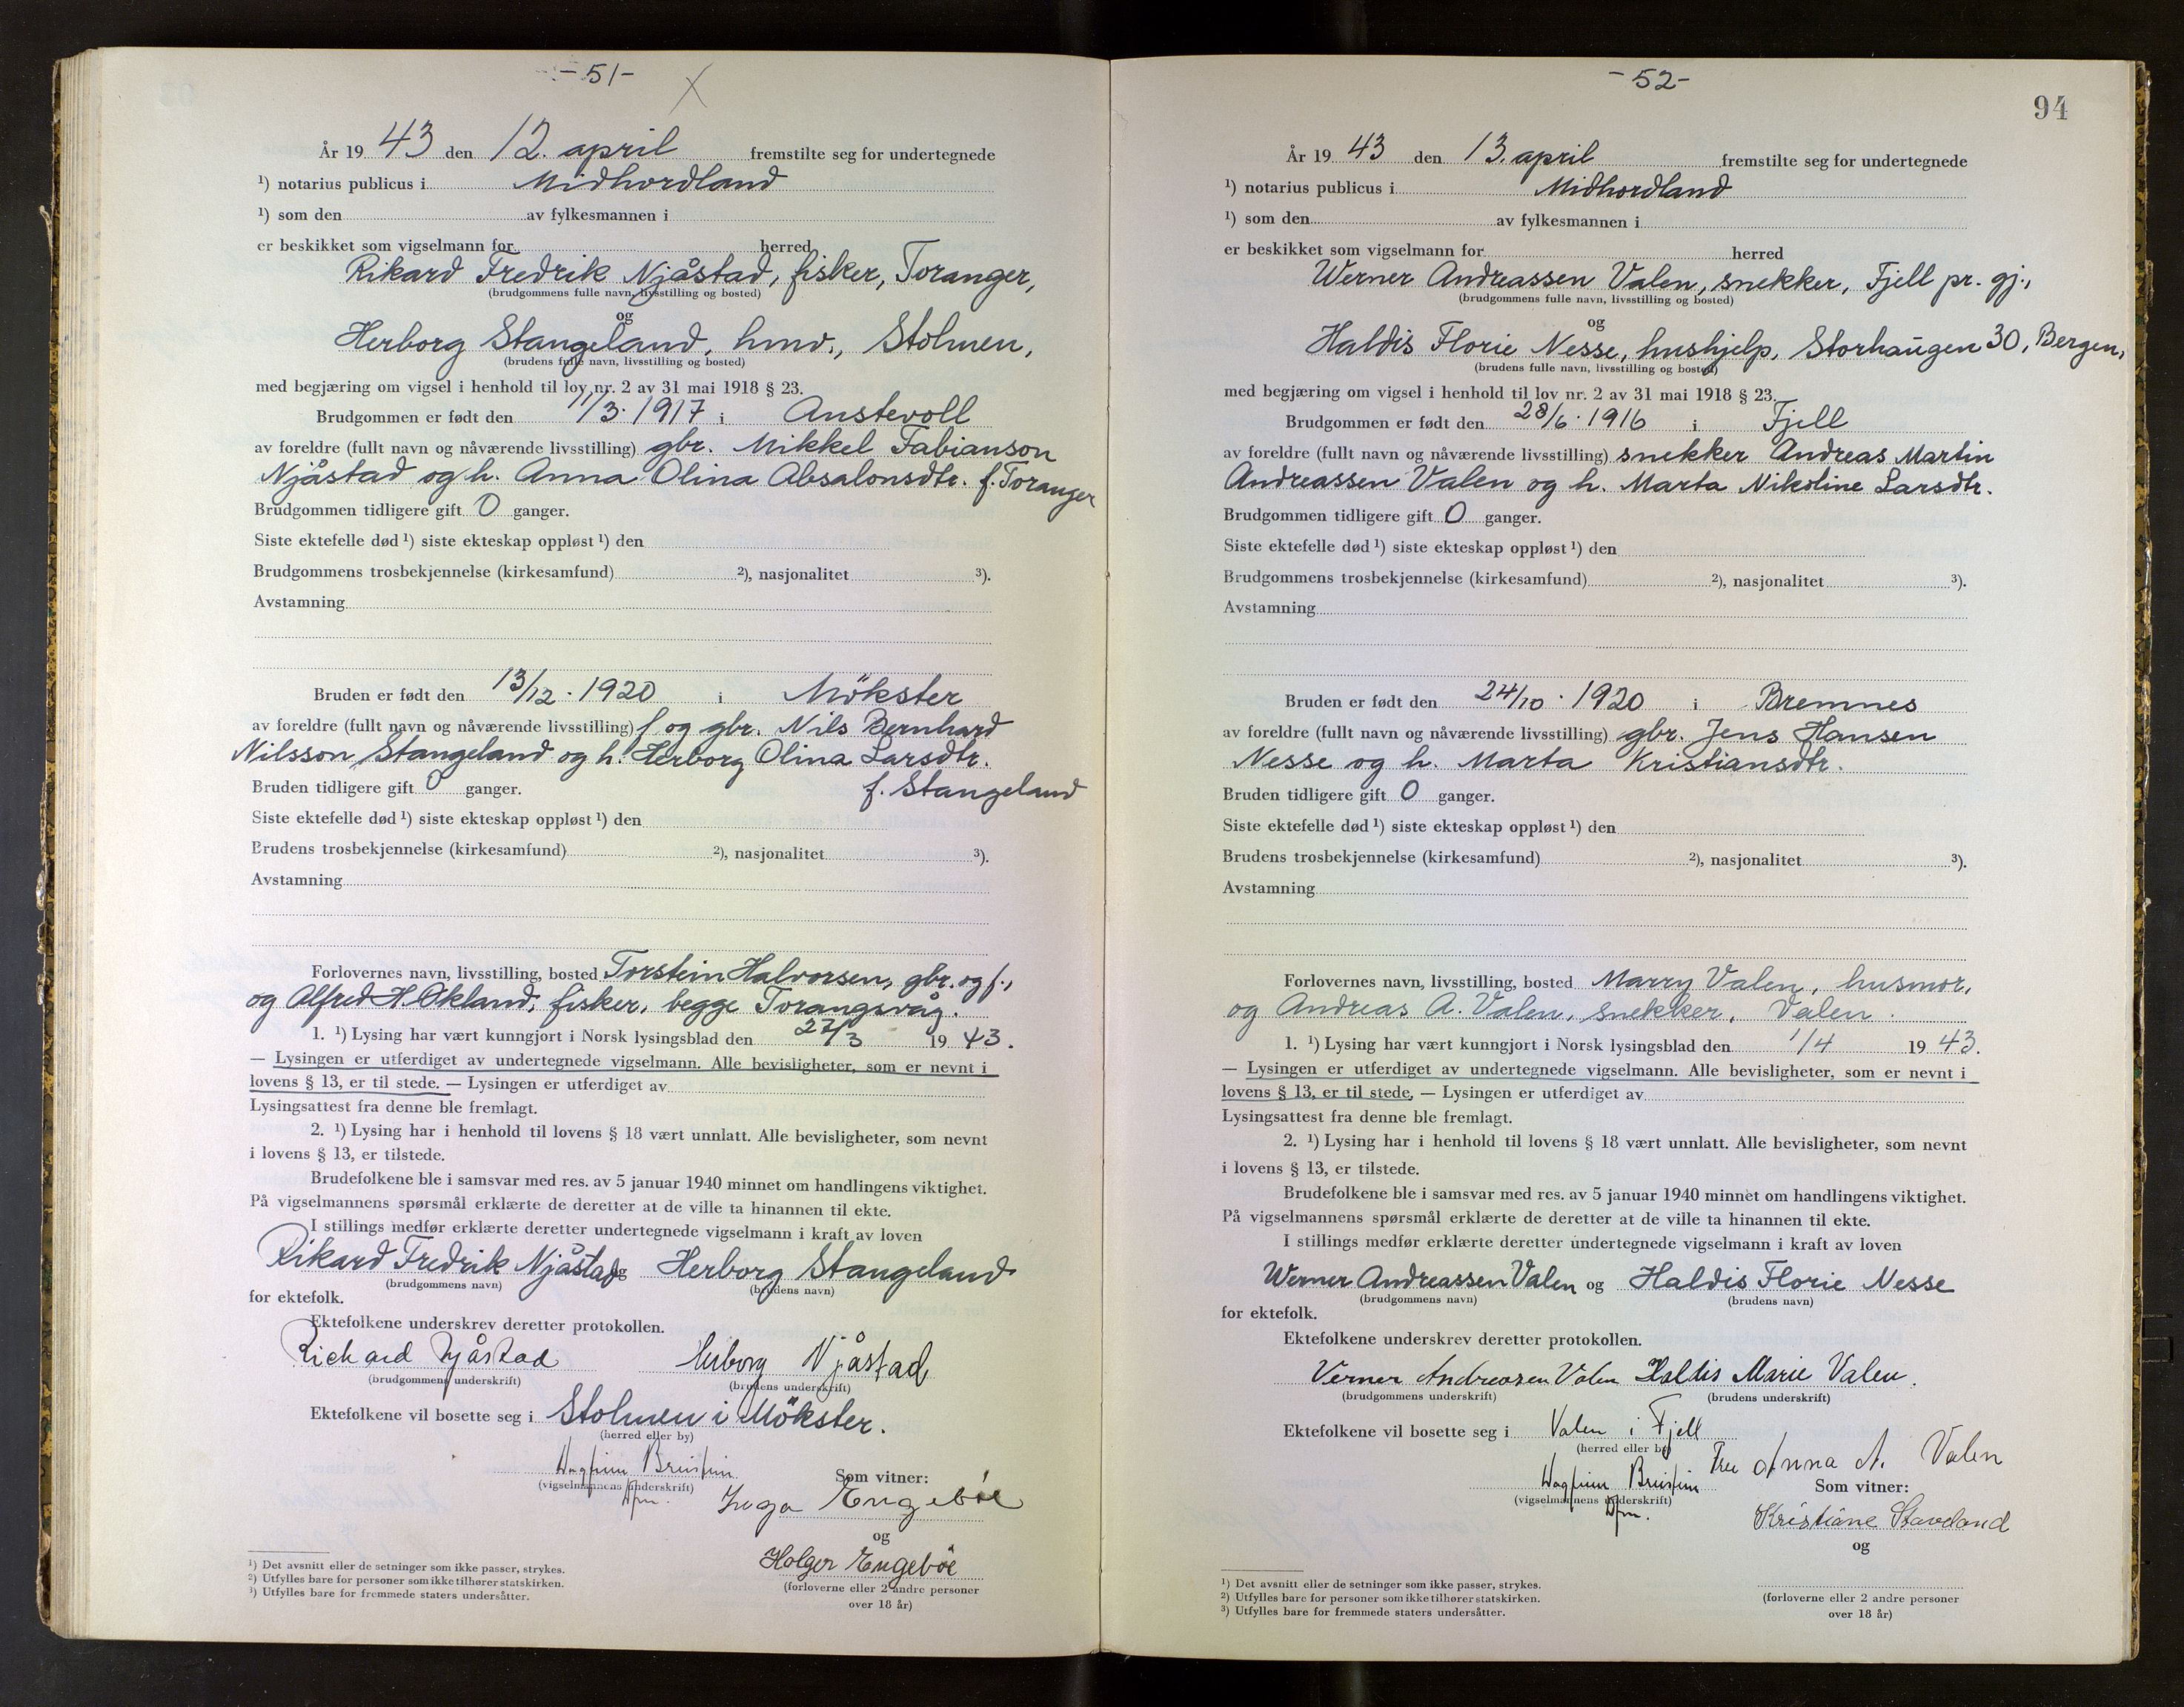 -51-
År 19 43 den 12. april fremstilte seg for undertegnede
¹) notarius publicus i Midhordland
¹) som den av fylkesmannen i
er beskikket som vigselmann for herred
Rikard Fredrik Njåstad, fisker, Toranger,
(brudgommens fulle navn, livsstilling og bosted)
og
Herborg Stangeland, hmv., Stolmen,
(brudens fulle navn, livsstilling og bosted)
med begjæring om vigsel i henhold til lov nr. 2 av 31 mai 1918 § 23.
Brudgommen er født den 11/3. 1917 i Austevoll
av foreldre (fullt navn og nåværende livsstilling) gbr. Mikkel Fabianson
Njåstad og h. Anna Olina Absalonsdtr. f. Toranger
Brudgommen tidligere gift 0 ganger.
Siste ektefelle død ¹) siste ekteskap oppløst ¹) den
Brudgommens trosbekjennelse (kirkesamfund) ²), nasjonalitet ³).
Avstamning
Bruden er født den 13/12. 1920 i Mökster
av foreldre (fullt navn og nåværende livsstilling) f og gbr. Nils Bernhard
Nilsson Stangeland og h. Herborg Olina Larsdtr.
f. Stangeland
Bruden tidligere gift 0 ganger.
Siste ektefelle død ¹) siste ekteskap oppløst ¹) den
Brudens trosbekjennelse (kirkesamfund) ²), nasjonalitet ³).
Avstamning
Forlovernes navn, livsstilling, bosted Torstein Halvorsen, gbr. og f.,
og Alfred H. Økland, fisker, begge Torangsvåg.
1. ¹) Lysing har vært kunngjort i Norsk lysingsblad den 27/3 19 43.
— Lysingen er utferdiget av undertegnede vigselmann. Alle bevisligheter, som er nevnt i
lovens § 13, er til stede. — Lysingen er utferdiget av
Lysingsattest fra denne ble fremlagt.
2. ¹) Lysing har i henhold til lovens § 18 vært unnlatt. Alle bevisligheter, som nevnt
i lovens § 13, er tilstede.
Brudefolkene ble i samsvar med res. av 5 januar 1940 minnet om handlingens viktighet.
På vigselmannens spørsmål erklærte de deretter at de ville ta hinannen til ekte.
I stillings medfør erklærte deretter undertegnede vigselmann i kraft av loven
Rikard Fredrik Njåstad og Herborg Stangeland
(brudgommens navn) (brudens navn)
for ektefolk.
Ektefolkene underskrev deretter protokollen.
Richard Njåstad Herborg Njåstad
(brudgommens underskrift) (brudens underskrift)
Ektefolkene vil bosette seg i Stolmen i Mökster.
(herred eller by)
Dagfinn Breistein
(vigselmannens underskrift) Som vitner:
dfm.
Inga Engebøe
og
Holger Engebøe
(forloverne eller 2 andre personer
over 18 år)
¹) Det avsnitt eller de setninger som ikke passer, strykes.
²) Utfylles bare for personer som ikke tilhører statskirken.
³) Utfylles bare for fremmede staters undersåtter.
-52-
94
År 19 43 den 13. april fremstilte seg for undertegnede
¹) notarius publicus i Midhordland
¹) som den av fylkesmannen i
er beskikket som vigselmann for herred
Werner Andreassen Valen, snekker, Fjell pr. gj.,
(brudgommens fulle navn, livsstilling og bosted)
og
Haldis Florie Nesse, hushjelp, Storhaugen 30, Bergen,
(brudens fulle navn, livsstilling og bosted)
med begjæring om vigsel i henhold til lov nr. 2 av 31 mai 1918 § 23.
Brudgommen er født den 28/6. 1916 i Fjell
av foreldre (fullt navn og nåværende livsstilling) snekker Andreas Martin
Andreassen Valen og h. Marta Nikoline Larsdtr.
Brudgommen tidligere gift 0 ganger.
Siste ektefelle død ¹) siste ekteskap oppløst ¹) den
Brudgommens trosbekjennelse (kirkesamfund) ²), nasjonalitet ³).
Avstamning
Bruden er født den 24/10. 1920 i Bremnes
av foreldre (fullt navn og nåværende livsstilling) gbr. Jens Hansen
Nesse og h. Marta Kristiansdtr.
Bruden tidligere gift 0 ganger.
Siste ektefelle død ¹) siste ekteskap oppløst ¹) den
Brudens trosbekjennelse (kirkesamfund) ²), nasjonalitet ³).
Avstamning
Forlovernes navn, livsstilling, bosted Marry Valen, husmor,
og Andreas A. Valen, snekker, Valen.
1. ¹) Lysing har vært kunngjort i Norsk lysingsblad den 1/4 19 43.
— Lysingen er utferdiget av undertegnede vigselmann. Alle bevisligheter, som er nevnt i
lovens § 13, er til stede, — Lysingen er utferdiget av
Lysingsattest fra denne ble fremlagt.
2. ¹) Lysing har i henhold til lovens § 18 vært unnlatt. Alle bevisligheter, som nevnt
i lovens § 13, er tilstede.
Brudefolkene ble i samsvar med res. av 5 januar 1940 minnet om handlingens viktighet.
På vigselmannens spørsmål erklærte de deretter at de ville ta hinannen til ekte.
I stillings medfør erklærte deretter undertegnede vigselmann i kraft av loven
Werner Andreassen Valen og Haldis Florie Nesse
(brudgommens navn) (brudens navn)
for ektefolk.
Ektefolkene underskrev deretter protokollen.
Verner Andreasen Valen Haldis Marie Valen.
(brudgommens underskrift) (brudens underskrift)
Ektefolkene vil bosette seg i Valen i Fjell
(herred eller by)
Fru Anna A. Valen
Dagfinn Breistein
(vigselmannens underskrift) Som vitner:
dfm.
Kristiane Staveland
og
(forloverne eller 2 andre personer
over 18 år)
¹) Det avsnitt eller de setninger som ikke passer, strykes.
²) Utfylles bare for personer som ikke tilhører statskirken.
³) Utfylles bare for fremmede staters undersåtter.